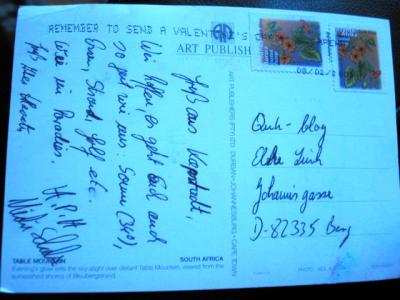 REMEMBER TO SEND A VALENTINE'S
ART PUBLISH
08/02/
Gruß aus Kapstadt,
Wir hoffen, es geht Euch auch
so gut wie uns: Sonne (34°),
Essen, Strand, Golf etc.
Wie im Paradies.
Quh-blog
Johannisgasse
D-82335 Berg
ART PUBLISHERS (PTY) LTD DURBAN • JOHANNESBURG • CAPE TOWN
TABLE MOUNTAIN SOUTH AFRICA
Evening's glow sets the sky alight over distant Table Mountain, viewed from the
sunwashed shores of Bloubergstrand.